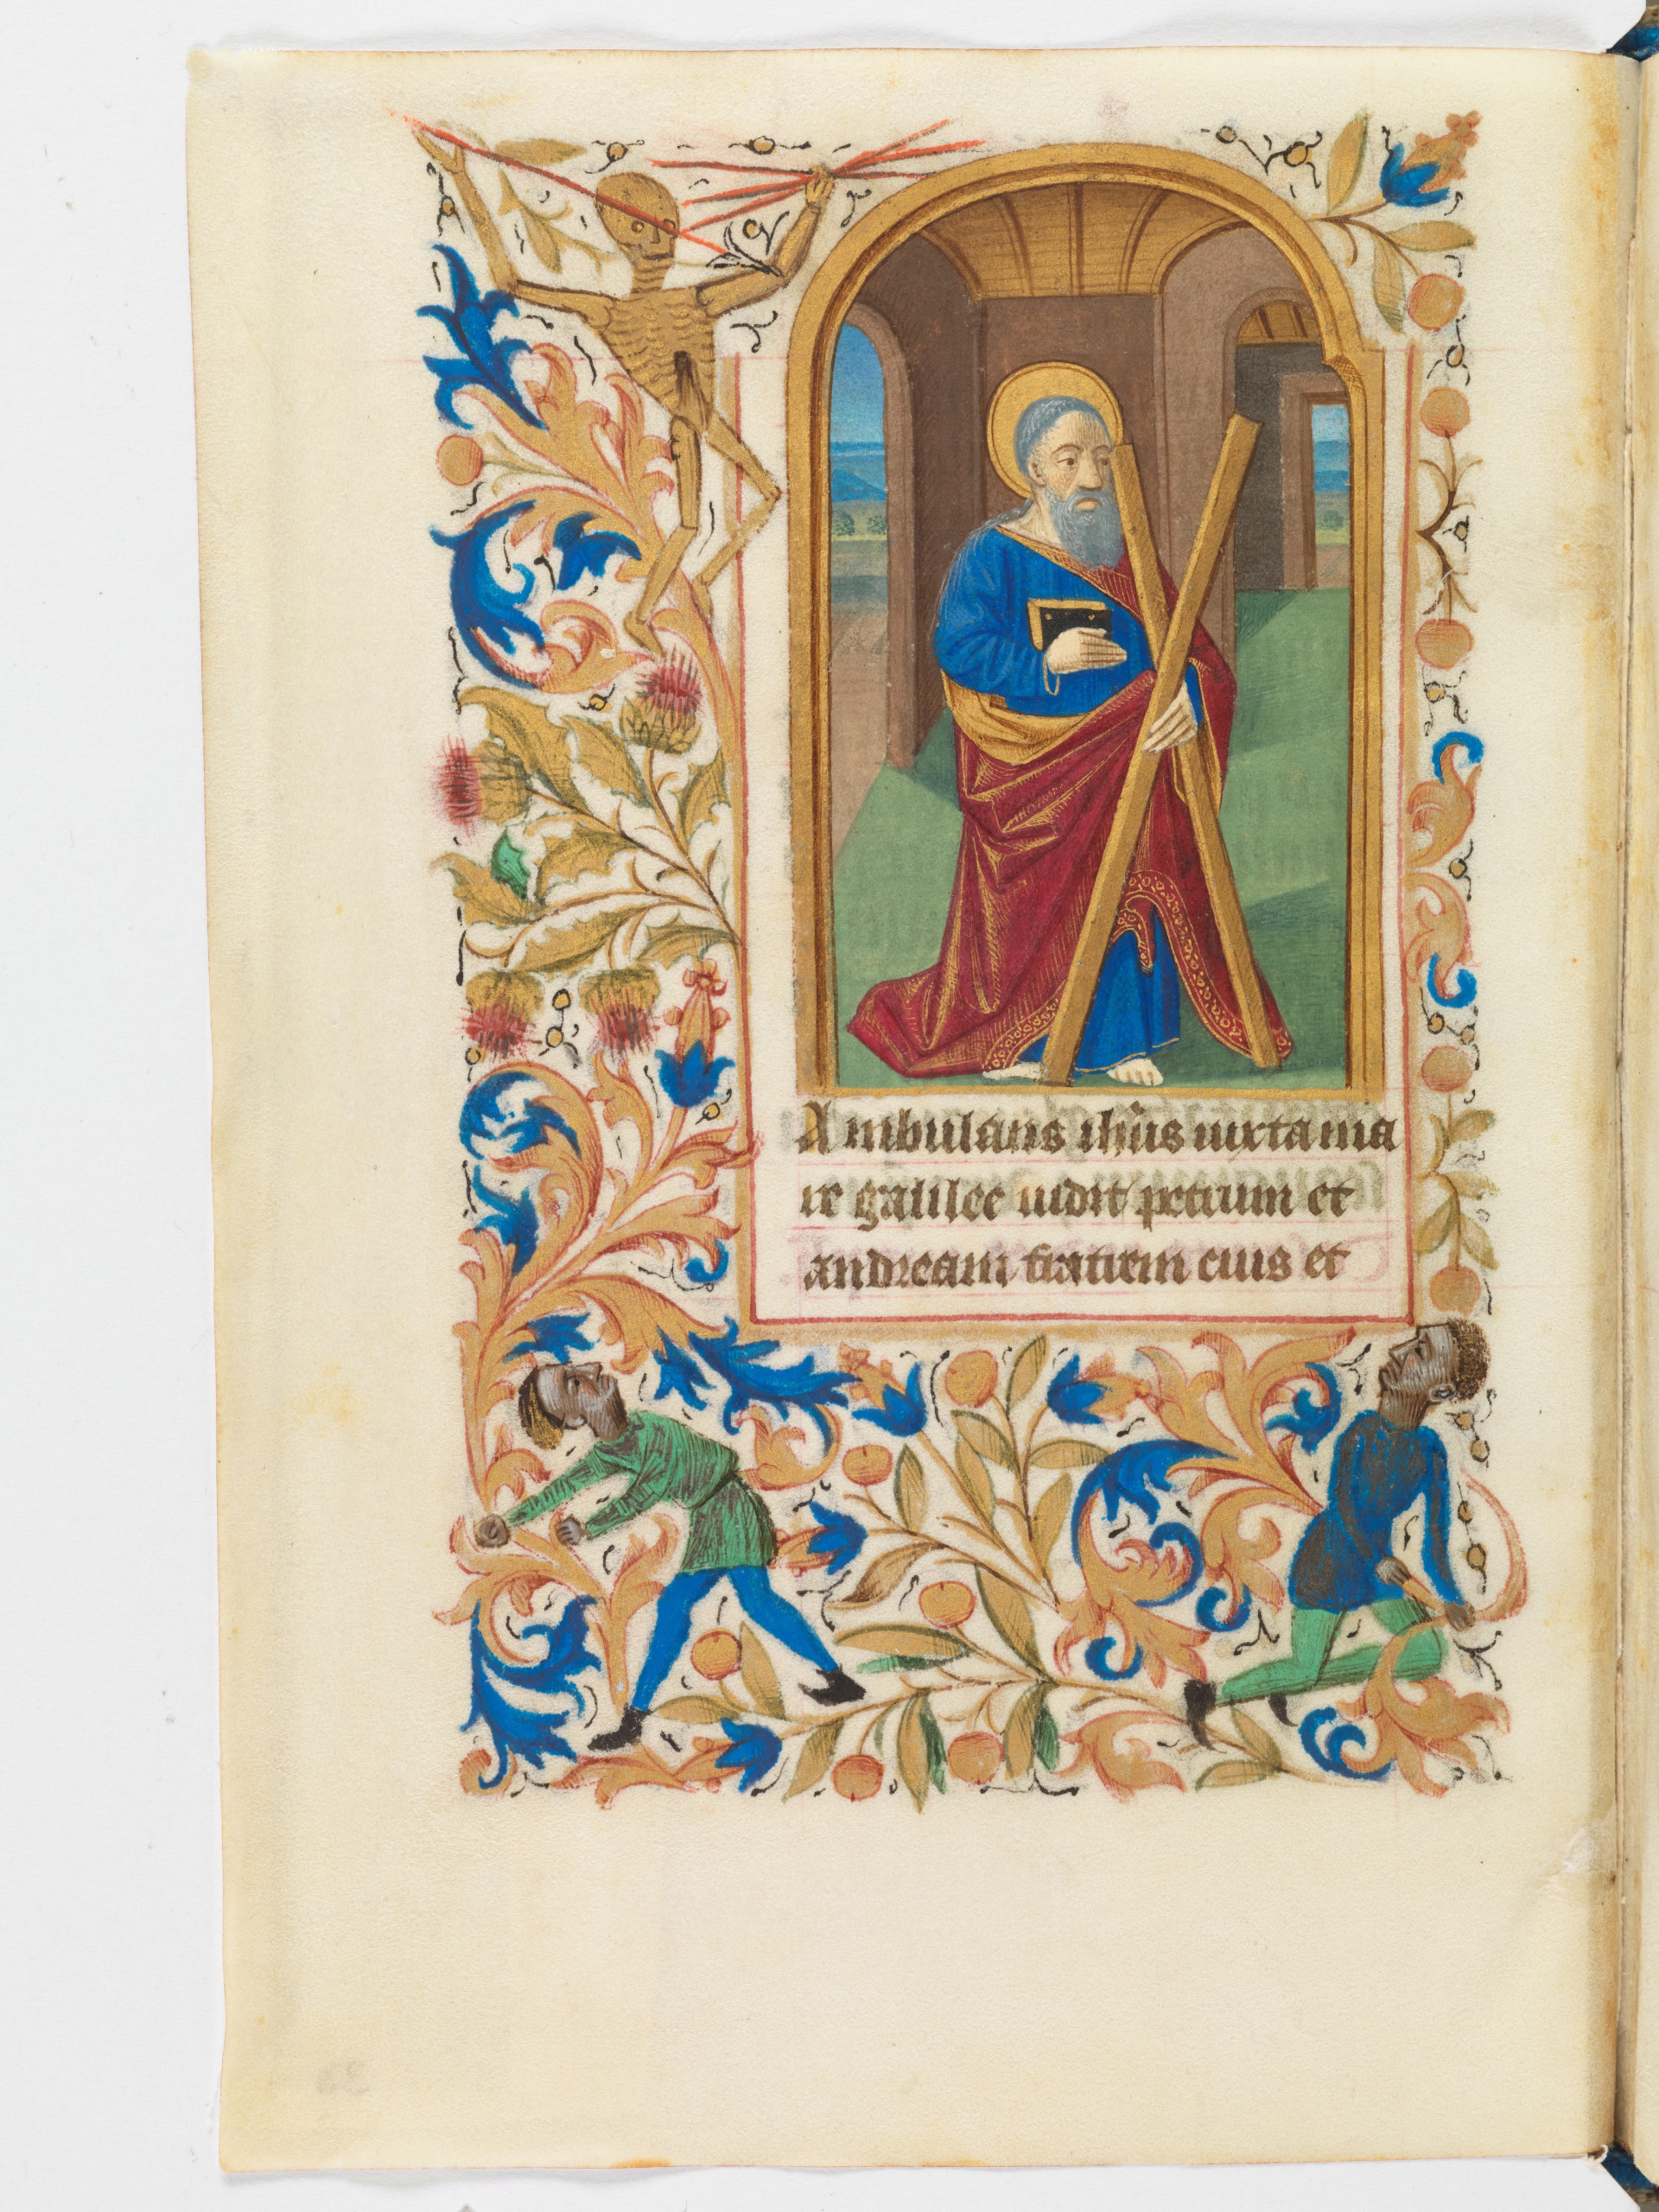 Ambulans ihus iuxta ma
re galilee uidit petrum et
andream fratrem eius et